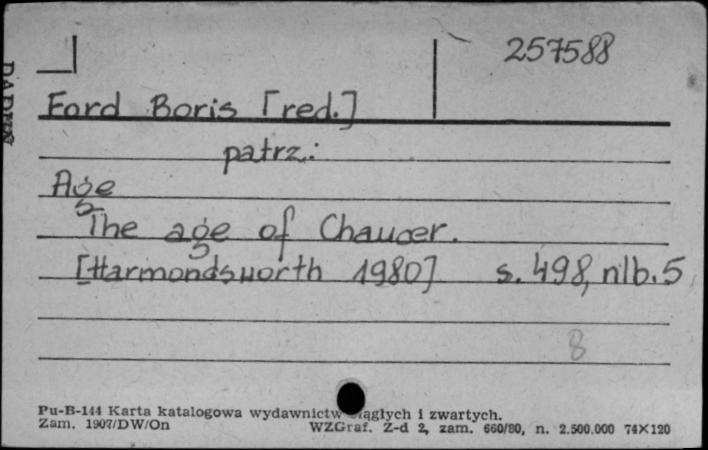 257588
Ford Boris [red.]
patrz.:
Age
The age of Chaucer.
[Harmondsworth 1980] s. 498, nlb. 5
8
Pu-B-144 Karta katalogowa wydawnictw ciągłych i zwartych.
Zam. 1907/DW/On WZGraf. Z-d 2, zam. 660/80, n. 2.500.000 74X120